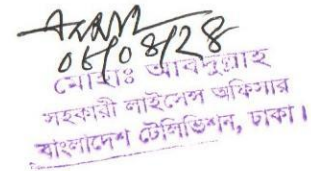 06/08/28
মোহাঃ আবদুল্লাহ
সহকারী লাইসেন্স অফিসার
বাংলাদেশ টেলিভিশন, ঢাকা।